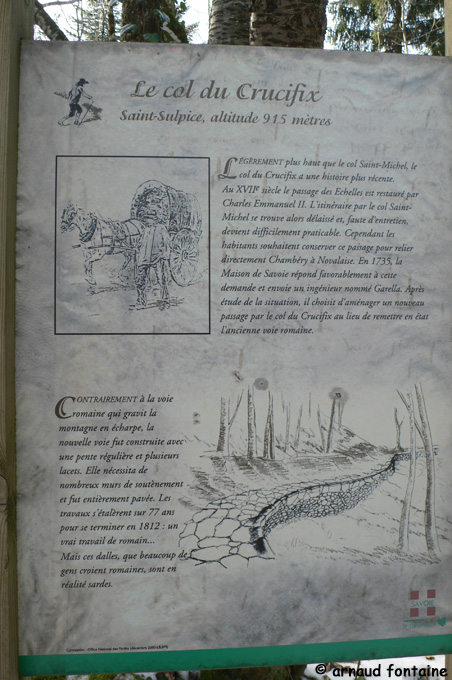 Le col du Crucifix
Saint-Sulpice, altitude 915 mètres
LÉGÈREMENT plus haut que le col Saint-Michel, le
col du Crucifix a une histoire plus récente.
Au XVIIe siècle le passage des Echelles est restauré par
Charles Emmanuel II. L'itinéraire par le col Saint-
Michel se trouve alors délaissé et, faute d'entretien,
devient difficilement praticable. Cependant les
habitants souhaitent conserver ce passage pour relier
directement Chambéry à Novalaise. En 1735, la
Maison de Savoie répond favorablement à cette
demande et envoie un ingénieur nommé Garella. Après
étude de la situation, il choisit d'aménager un nouveau
passage par le col du Crucifix au lieu de remettre en état
l'ancienne voie romaine.
CONTRAIREMENT à la voie
romaine qui gravit la
montagne en écharpe, la
nouvelle voie fut construite avec
une pente régulière et plusieurs
lacets. Elle nécessita de
nombreux murs de soutènement
et fut entièrement pavée. Les
travaux s'étalèrent sur 77 ans
pour se terminer en 1812 : un
vrai travail de romain...
Mais ces dalles, que beaucoup de
gens croient romaines, sont en
réalité sardes.
SAVOIE
© arnaud fontaine